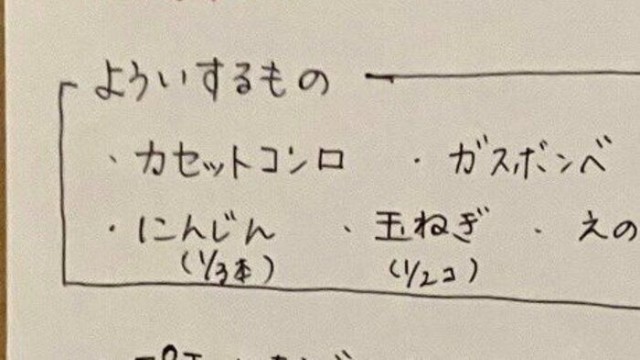 よういするもの
・カセットコンロ ・ガスボンベ
・にんじん ・玉ねぎ ・えの
(1/3本) (1/2コ)